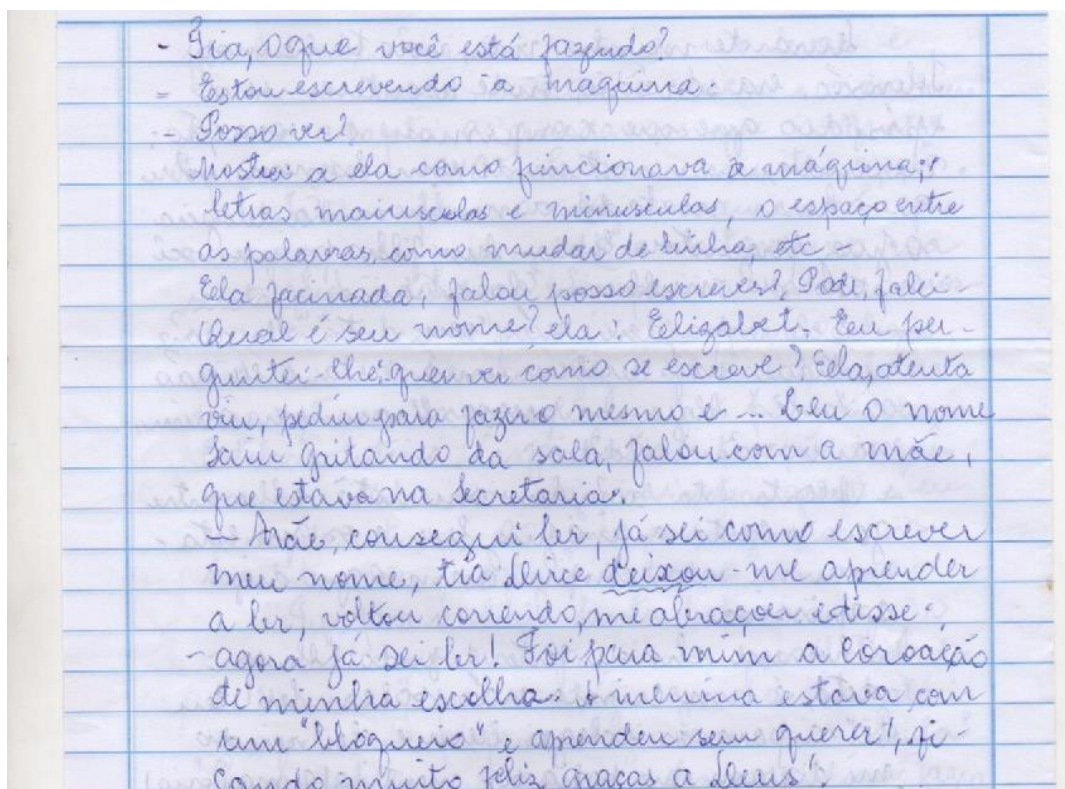 - Tia, o que você está fazendo?
- Estou escrevendo à maquina.
- Posso ver?
Mostrei a ela como funcionava a máquina;
letras maiusculas e minusculas, o espaço entre
as palavras, como mudar de linha, etc -
Ela facinada, falou posso escrever?, Pode, falei
Qual é seu nome? ela: Elizabet. Eu per-
guntei-lhe: quer ver como se escreve? Ela, atenta
viu, pediu para fazer o mesmo e ... Leu o nome
Saiu gritando da sala, falou com a mãe,
que estava na secretaria.
- Mãe, consegui ler, já sei como escrever
meu nome, tia deixou-me aprender
a ler, voltou correndo, me abraçou e disse:
- agora já sei ler! Foi para mim a coroação
de minha escolha. A menina estava com
um "bloqueio" e aprendeu sem querer!, fi-
cando muito feliz graças a Deus!